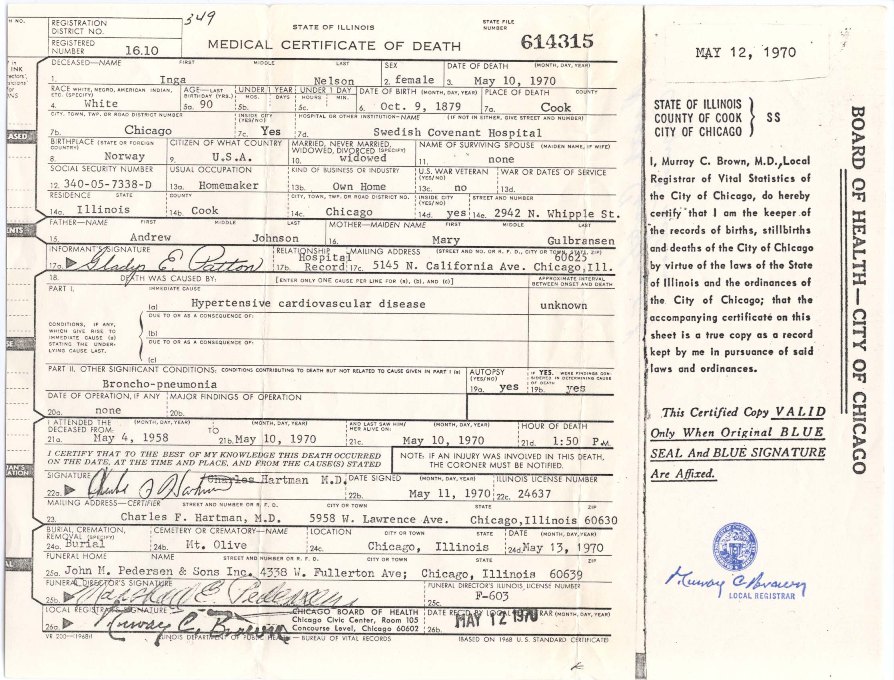 H NO.
REGISTRATION DISTRICT NO.
349
REGISTERED NUMBER 16.10
STATE OF ILLINOIS
STATE FILE NUMBER
MEDICAL CERTIFICATE OF DEATH
614315
DECEASED—NAME FIRST MIDDLE LAST SEX DATE OF DEATH (MONTH, DAY, YEAR)
1. Inga Nelson 2. female 3. May 10, 1970
RACE WHITE, NEGRO, AMERICAN INDIAN, ETC. (SPECIFY) AGE—LAST BIRTHDAY (YRS.) UNDER 1 YEAR MOS. DAYS UNDER 1 DAY HOURS MIN. DATE OF BIRTH (MONTH, DAY, YEAR) PLACE OF DEATH COUNTY
4. White 5a. 90 5b. 5c. 6. Oct. 9, 1879 7a. Cook
CITY, TOWN, TWP. OR ROAD DISTRICT NUMBER INSIDE CITY (YES/NO) HOSPITAL OR OTHER INSTITUTION—NAME (IF NOT IN EITHER, GIVE STREET AND NUMBER)
7b. Chicago 7c. Yes 7d. Swedish Covenant Hospital
BIRTHPLACE (STATE OR FOREIGN COUNTRY) CITIZEN OF WHAT COUNTRY MARRIED, NEVER MARRIED, WIDOWED, DIVORCED (SPECIFY) NAME OF SURVIVING SPOUSE (MAIDEN NAME, IF WIFE)
8. Norway 9. U.S.A. 10. widowed 11. none
SOCIAL SECURITY NUMBER USUAL OCCUPATION KIND OF BUSINESS OR INDUSTRY U.S. WAR VETERAN (YES/NO) WAR OR DATES OF SERVICE
12. 340-05-7338-D 13a. Homemaker 13b. Own Home 13c. no 13d.
RESIDENCE STATE COUNTY CITY, TOWN, TWP. OR ROAD DISTRICT NO. INSIDE CITY (YES/NO) STREET AND NUMBER
14a. Illinois 14b. Cook 14c. Chicago 14d. yes 14e. 2942 N. Whipple St.
FATHER—NAME FIRST MIDDLE LAST MOTHER—MAIDEN NAME FIRST MIDDLE LAST
15. Andrew Johnson 16. Mary Gulbransen
INFORMANT'S SIGNATURE RELATIONSHIP MAILING ADDRESS (STREET AND NO. OR R. F. D., CITY OR TOWN, STATE, ZIP)
17a. Gladys E. Patton 17b. Hospital Record 17c. 5145 N. California Ave. Chicago, Ill. 60625
18. DEATH WAS CAUSED BY: [ENTER ONLY ONE CAUSE PER LINE FOR (a), (b), AND (c)] APPROXIMATE INTERVAL BETWEEN ONSET AND DEATH
PART I. IMMEDIATE CAUSE
(a) Hypertensive cardiovascular disease unknown
DUE TO OR AS A CONSEQUENCE OF:
CONDITIONS, IF ANY, WHICH GIVE RISE TO IMMEDIATE CAUSE (a) STATING THE UNDERLYING CAUSE LAST.
(b)
DUE TO OR AS A CONSEQUENCE OF:
(c)
PART II. OTHER SIGNIFICANT CONDITIONS: CONDITIONS CONTRIBUTING TO DEATH BUT NOT RELATED TO CAUSE GIVEN IN PART I (a) AUTOPSY (YES/NO) IF YES, WERE FINDINGS CONSIDERED IN DETERMINING CAUSE OF DEATH
Broncho-pneumonia 19a. yes 19b. yes
DATE OF OPERATION, IF ANY MAJOR FINDINGS OF OPERATION
20a. none 20b.
I ATTENDED THE DECEASED FROM (MONTH, DAY, YEAR) TO (MONTH, DAY, YEAR) AND LAST SAW HIM/HER ALIVE ON: (MONTH, DAY, YEAR) HOUR OF DEATH
21a. May 4, 1958 21b. May 10, 1970 21c. May 10, 1970 21d. 1:50 P.M.
I CERTIFY THAT TO THE BEST OF MY KNOWLEDGE THIS DEATH OCCURRED ON THE DATE, AT THE TIME AND PLACE, AND FROM THE CAUSE(S) STATED
NOTE: IF AN INJURY WAS INVOLVED IN THIS DEATH, THE CORONER MUST BE NOTIFIED.
SIGNATURE Charles Hartman M.D. DATE SIGNED (MONTH, DAY, YEAR) ILLINOIS LICENSE NUMBER
22a. 22b. May 11, 1970 22c. 24637
MAILING ADDRESS—CERTIFIER STREET AND NUMBER OR R. F. D. CITY OR TOWN STATE ZIP
23. Charles F. Hartman, M.D. 5958 W. Lawrence Ave. Chicago, Illinois 60630
BURIAL, CREMATION, REMOVAL (SPECIFY) CEMETERY OR CREMATORY—NAME LOCATION CITY OR TOWN STATE DATE (MONTH, DAY, YEAR)
24a. Burial 24b. Mt. Olive 24c. Chicago, Illinois 24d. May 13, 1970
FUNERAL HOME NAME STREET AND NUMBER OR R. F. D. CITY OR TOWN STATE ZIP
25a. John M. Pedersen & Sons Inc. 4338 W. Fullerton Ave; Chicago, Illinois 60639
FUNERAL DIRECTOR'S SIGNATURE FUNERAL DIRECTOR'S ILLINOIS LICENSE NUMBER
25b. 25c. F-603
LOCAL REGISTRAR'S SIGNATURE CHICAGO BOARD OF HEALTH DATE REC'D BY LOCAL REGISTRAR (MONTH, DAY, YEAR)
26a. Murray C. Brown Chicago Civic Center, Room 105 26b. MAY 12 1970
Concourse Level, Chicago 60602
VR 200—1968 ILLINOIS DEPARTMENT OF PUBLIC HEALTH—BUREAU OF VITAL RECORDS (BASED ON 1968 U.S. STANDARD CERTIFICATE)
MAY 12, 1970
STATE OF ILLINOIS
COUNTY OF COOK SS
CITY OF CHICAGO
I, Murray C. Brown, M.D., Local
Registrar of Vital Statistics of
the City of Chicago, do hereby
certify that I am the keeper of
the records of births, stillbirths
and deaths of the City of Chicago
by virtue of the laws of the State
of Illinois and the ordinances of
the City of Chicago; that the
accompanying certificate on this
sheet is a true copy as a record
kept by me in pursuance of said
laws and ordinances.
This Certified Copy VALID
Only When Original BLUE
SEAL And BLUE SIGNATURE
Are Affixed.
Murray C Brown
LOCAL REGISTRAR
BOARD OF HEALTH—CITY OF CHICAGO